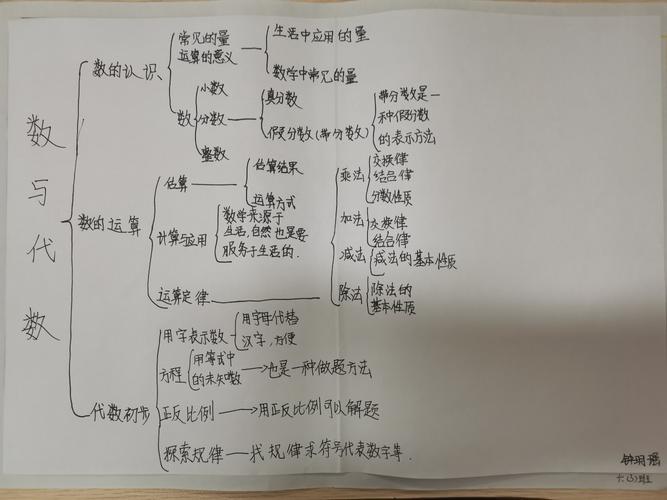 数与代数
数的认识
常见的量
运算的意义
生活中应用的量
数学中常见的量
数
小数
分数
整数
真分数
假分数(带分数)
带分数是一
种假分数
的表示方法
数的运算
估算
估算结果
运算方式
计算与应用
数学来源于
生活,自然也是要
服务于生活的.
运算定律
乘法
交换律
结合律
分数性质
加法
交换律
结合律
减法
减法的基本性质
除法
除法的
基本性质
代数初步
用字表示数
用字母代替
汉字,方便
方程
用等式中
的未知数
也是一种做题方法
正反比例
用正反比例可以解题
探索规律
找规律求符号代表数字等.